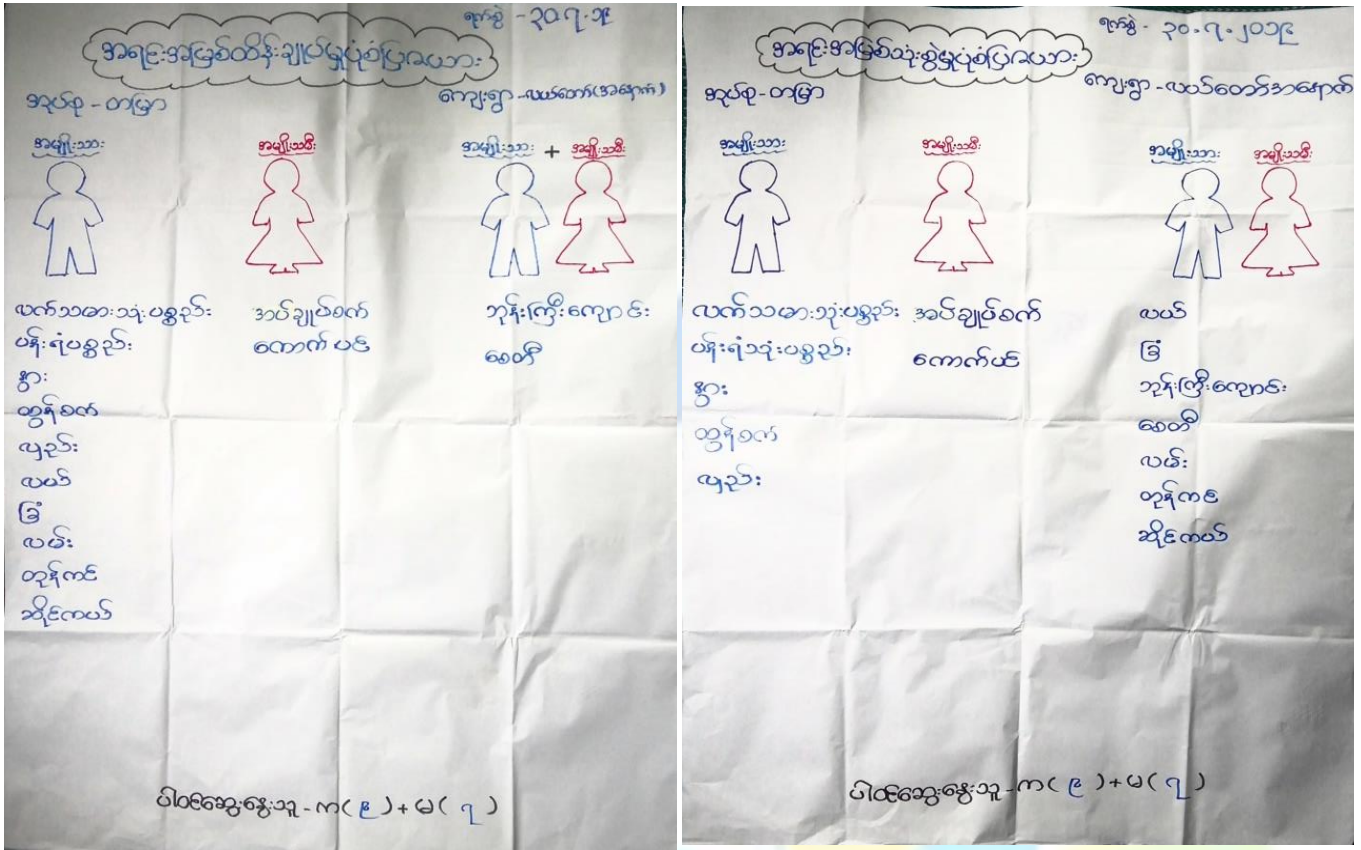 ရက်စွဲ - ၃၀.၇.၁၉
အရင်းအမြစ်ထိန်းချုပ်မှုပုံစံပြဇယား
အုပ်စု - တမြာ
ကျေးရွာ - လယ်တော်(အနောက်)
အမျိုးသား
အမျိုးသမီး
အမျိုးသား + အမျိုးသမီး
လက်သမားသုံးပစ္စည်း
ပန်းရံပစ္စည်း
နွား
ထွန်စက်
လှည်း
လယ်
ခြံ
လမ်း
တုန်ကင်
ဆိုင်ကယ်
အပ်ချုပ်စက်
ကောက်ပင်
ဘုန်းကြီးကျောင်း
စေတီ
ပါဝင်ဆွေးနွေးသူ - က(၉)+မ(၇)
ရက်စွဲ - ၃၀.၇.၂၀၁၉
အရင်းအမြစ်သုံးစွဲမှုပုံစံပြဇယား
အုပ်စု - တမြာ
ကျေးရွာ - လယ်တော်အနောက်
အမျိုးသား
အမျိုးသမီး
အမျိုးသား အမျိုးသမီး
လက်သမားသုံးပစ္စည်း
ပန်းရံသုံးပစ္စည်း
နွား
ထွန်စက်
လှည်း
အပ်ချုပ်စက်
ကောက်ပင်
လယ်
ခြံ
ဘုန်းကြီးကျောင်း
စေတီ
လမ်း
တုန်ကင်
ဆိုင်ကယ်
ပါဝင်ဆွေးနွေးသူ - က(၉)+မ(၇)